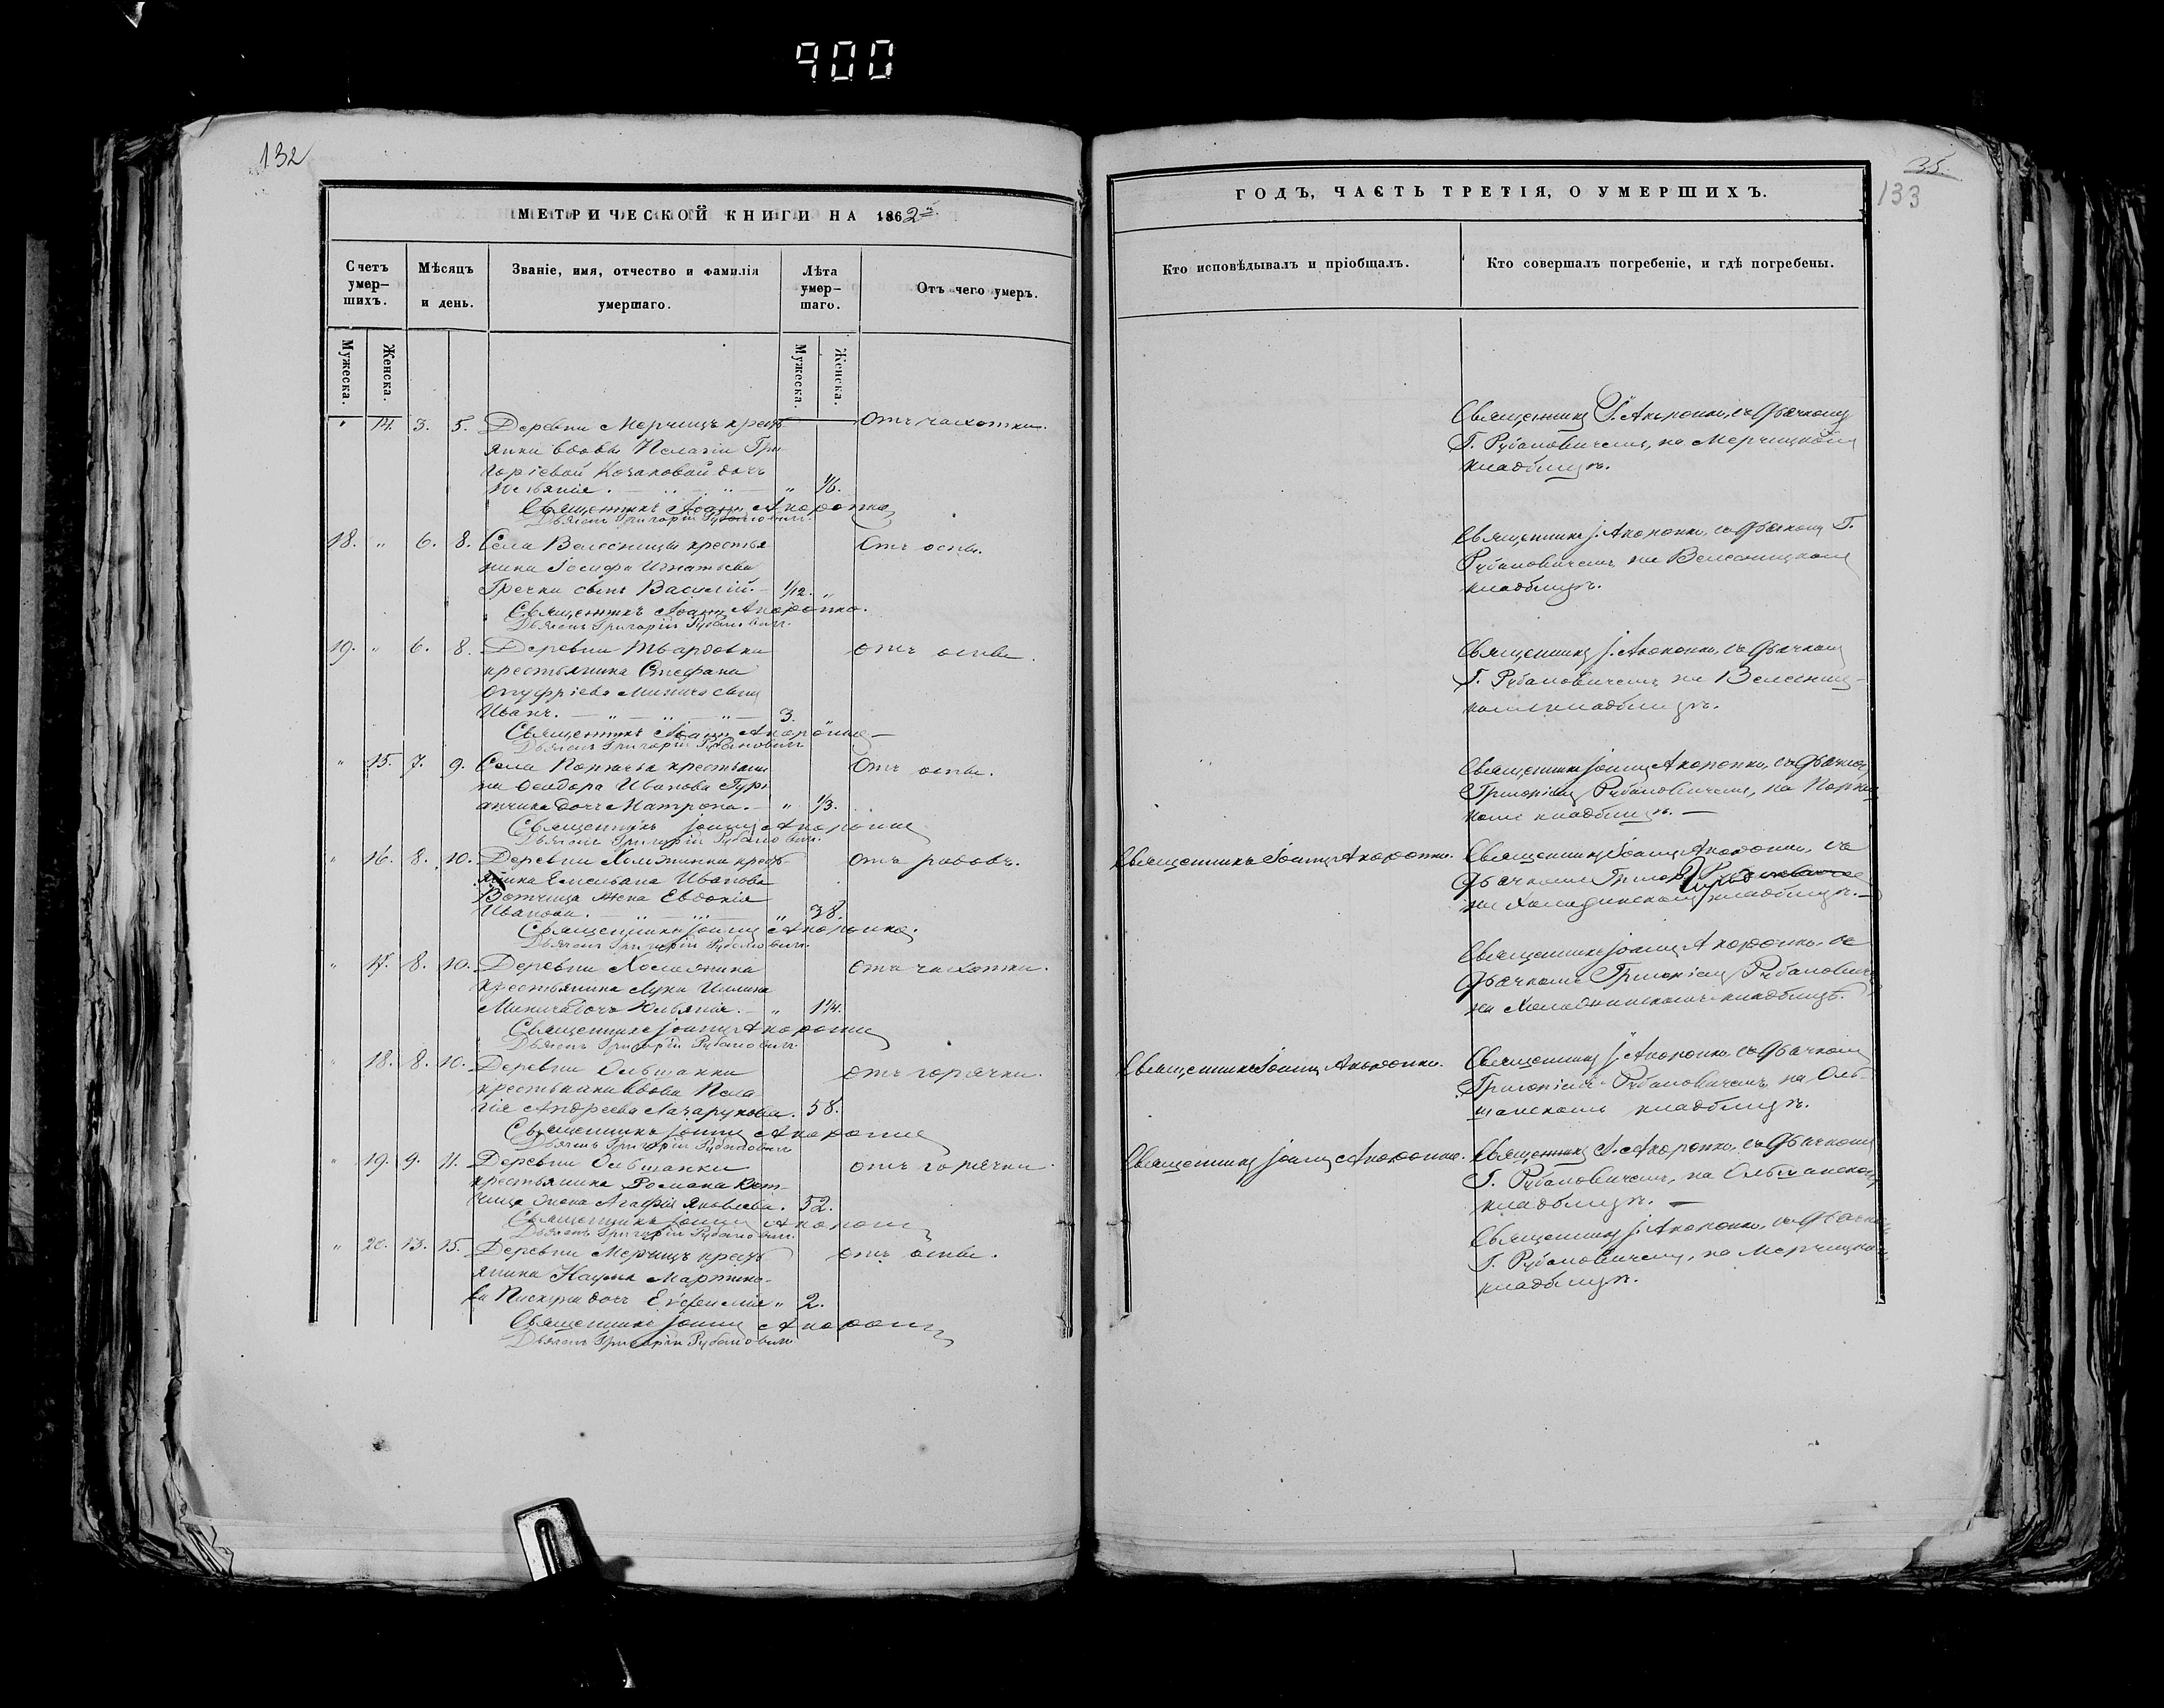 900
132
МЕТРИЧЕСКОЙ КНИГИ НА 1862й
Счетъ умер-шихъ.
Мѣсяцъ и день.
Званіе, имя, отчество и фамилія умершаго.
Лѣта умер-шаго.
Отъ чего умеръ.
Мужеска.
Женска.
Мужеска.
Женска.
" 14. 3. 5. Деревни Мерчицъ крест отъ чахотки.
янки вдовы Пелагіи Гри-
горіевой Козаковой дочь
" 1/6.
Священникъ Іоаннъ Акоронко
Дьячекъ Григорій Рубановичъ.
18. " 6. 8. Села Велесницы крестья Отъ оспы.
нина Іосифа Игнатьева
Гречки сынъ Василій. 1/12. "
Священникъ Іоаннъ Акоронко.
Дьячекъ Григорій Рубановичъ.
19. " 6. 8. Деревни Твардовки отъ оспы.
крестьянина Стефана
Онуфріева сынъ
Иванъ. 3.
Священникъ Іоаннъ Акоронко
Дьячекъ Григорій Рубановичъ
" 15. 7. 9. Села крестьяни Отъ оспы.
на Ѳеодора Иванова
дочь Матрона. " 1/3.
Священникъ Іоаннъ Акоронко
Дьячекъ Григорій Рубановичъ.
" 16. 8. 10. Деревни крест отъ родовъ.
янина Емельяна Иванова
жена Евдокія
Иванова. " 38.
Священникъ Іоаннъ Акоронко.
Дьячекъ Григорій Рубановичъ.
" 17. 8. 10. Деревни отъ чахотки.
крестьянина Луки
дочь " 1/4.
Священникъ Іоаннъ Акоронко
Дьячекъ Григорій Рубановичъ
" 18. 8. 10. Деревни Ольшанки отъ горячки.
крестьянки вдова Пела-
гія Андреева 58.
Священникъ Іоаннъ Акоронко
Дьячекъ Григорій Рубановичъ
" 19. 9. 11. Деревни Ольшанки отъ горячки.
крестьянина Романа
жена Агафія Яковлева. 52.
Священникъ Іоаннъ Акоронко
Дьячекъ Григорій Рубановичъ.
" 20. 13. 15. Деревни Мерчицъ крест отъ оспы.
янина Наума Мартино-
ва дочь Евфимія " 2.
Священникъ Іоаннъ Акоронко
Дьячекъ Григорій Рубановичъ
35.
133
ГОДЪ, ЧАСТЬ ТРЕТІЯ, О УМЕРШИХЪ.
Кто исповѣдывалъ и пріобщалъ.
Кто совершалъ погребеніе, и гдѣ погребены.
Священникъ І. Акоронко, съ дьячкомъ
Г. Рубановичемъ, на Мерчицкомъ
кладбищѣ.
Священникъ І. Акоронко, съ дьячкомъ Г.
Рубановичемъ на Велесницкомъ
кладбищѣ.
Священникъ І. Акоронко, съ дьячкомъ
Г. Рубановичемъ на Велесниц-
комъ кладбищѣ.
Священникъ Іоаннъ Акоронко, съ дьячкомъ
Григоріемъ Рубановичемъ, на
комъ кладбищѣ.
Священникъ Іоаннъ Акоронко. Священникъ Іоаннъ Акоронко, съ
дьячкомъ
на кладбищѣ.
Священникъ Іоаннъ Акоронко съ
дьячкомъ Григоріемъ Рубановиче
на кладбищѣ.
Священникъ Іоаннъ Акоронко. Священникъ І. Акоронко съ дьячкомъ
Григоріемъ Рубановичемъ на Оль-
шанскомъ кладбищѣ.
Священникъ Іоаннъ Акоронко. Священникъ І. Акоронко, съ дьячкомъ
Г. Рубановичемъ, на Ольшанскомъ
кладбищѣ.
Священникъ І. Акоронко, съ дьячкомъ
Г. Рубановичемъ, на Мерчицкомъ
кладбищѣ.